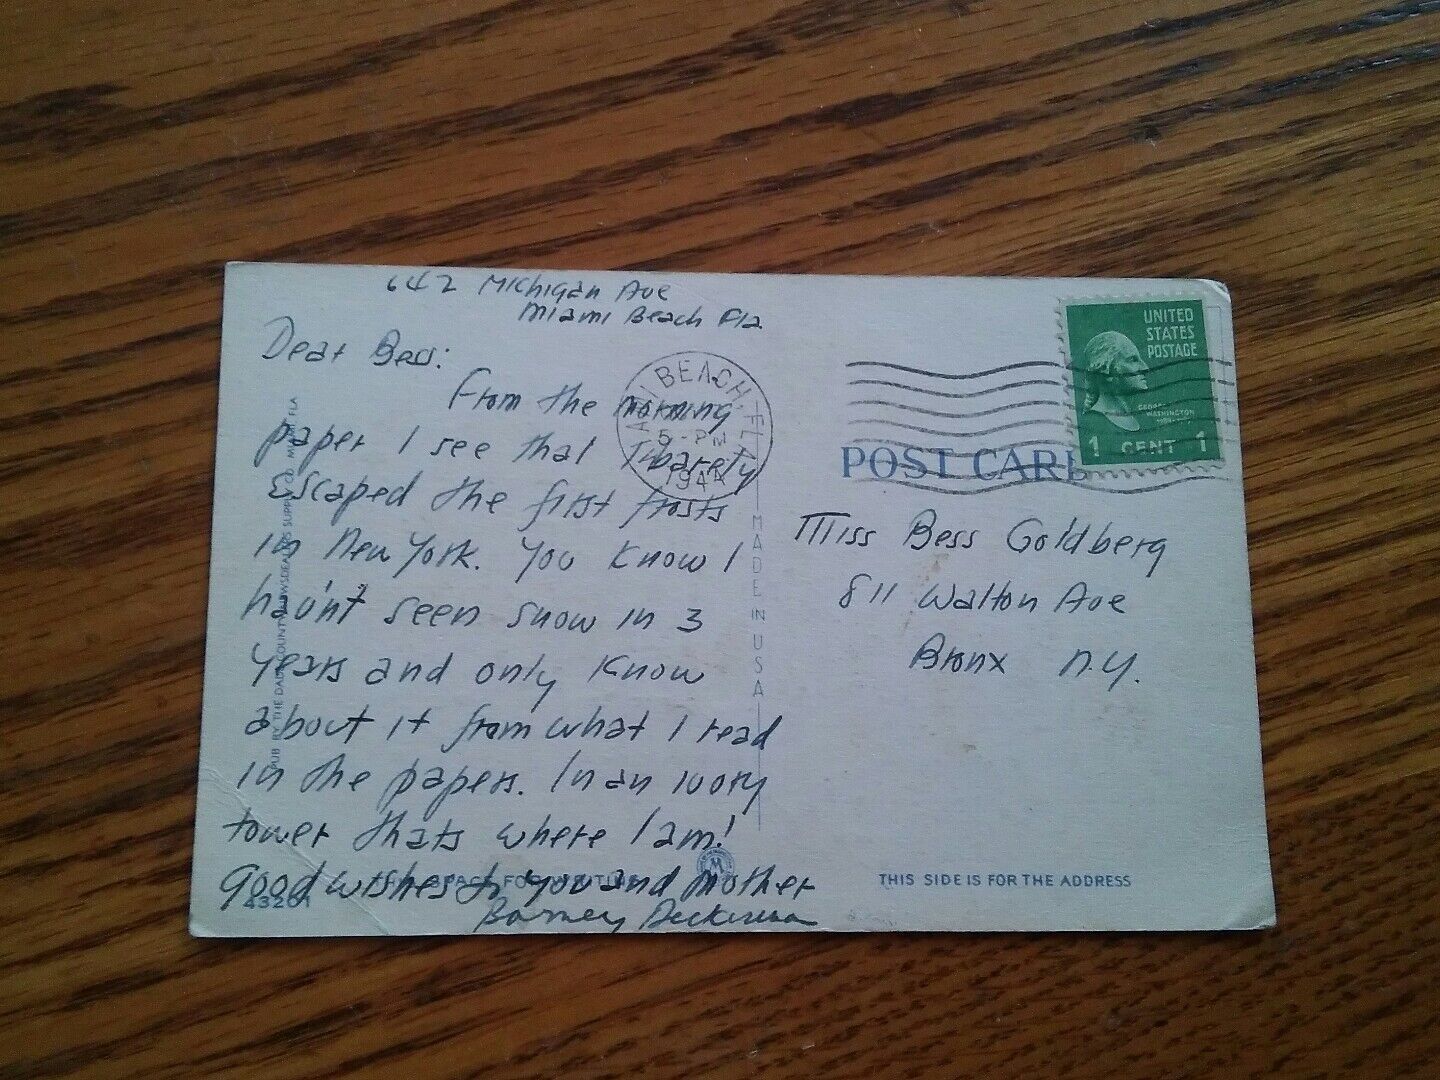 642 Michigan Ave
Miami Beach Fla
Dear Bess:
From the morning
paper I see that I barely
escaped the first frosts
in New York. You know I
hav'nt seen snow in 3
years and only know
about it from what I read
in the papers. In an ivory
tower thats where I am!
Good wishes to you and Mother
Barney
BEACH, FLA.
5 - PM
1944
UNITED
STATES
POSTAGE
GEORGE
WASHINGTON
1 CENT 1
POST CARD
Miss Bess Goldberg
811 Walton Ave
Bronx N.Y.
MADE IN U.S.A.
PUB BY THE DADE COUNTY NEWSDEALERS SUPPLY CO. MIAMI FLA
43201
THIS SIDE IS FOR THE ADDRESS